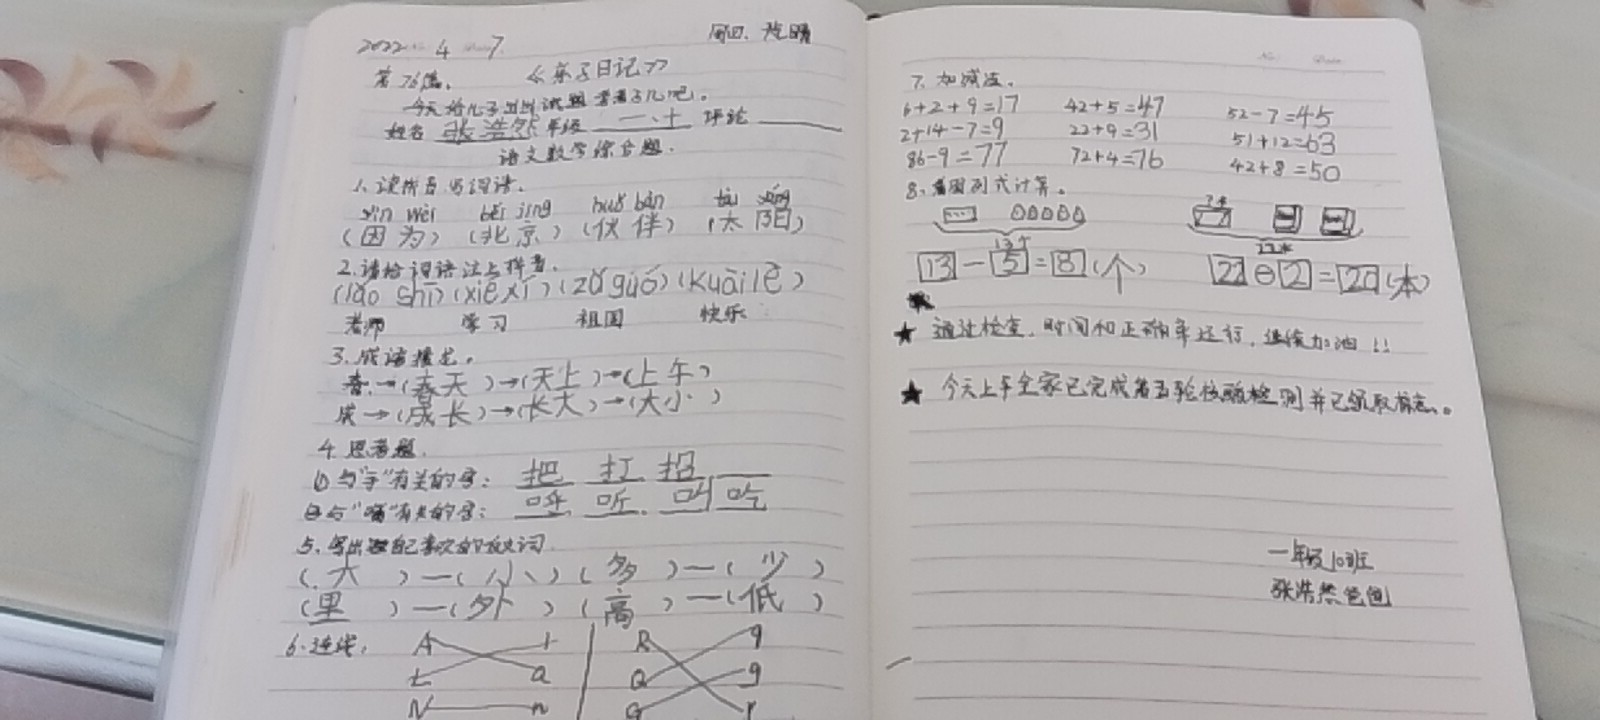 2022 4 7 周四. 晴
第76篇. 《亲子日记》
今天给儿子出出试题 考考了儿吧。
姓名 张浩然 年级 一、十 评论
语文数学综合题.
1. 读拼音写词语.
yīn wèi běi jīng huǒ bàn tài yáng
(因为) (北京) (伙伴) (太阳)
2. 请给词语注上拼音.
(lǎo shī) (xiéxí) (zǔ guó) (kuàilè)
老师 学习 祖国 快乐
3. 成语接龙。
春→(春天)→(天上)→(上午)
成→(成长)→(长大)→(大小)
4. 思考题.
① 与"手"有关的字: 把 打 招
② 与"嘴"有关的字: 呼 听 叫 吃
5. 写出自己喜欢的反义词.
(大)—(小) (多)—(少)
(里)—(外) (高)—(低)
6. 连线:
A t R q
L a Q g
N n G r
7. 加减法.
6+2+9=17 42+5=47 52-7=45
2+14-7=9 22+9=31 51+12=63
86-9=77 72+4=76 42+8=50
8. 看图列式计算。
?本
13个 22本
13-5=8(个) 22⊖2=20(本)
★ 通过检查, 时间和正确率还行, 继续加油!!
★ 今天上午全家已完成第五轮核酸检测并已领取标志。
一年级10班
张浩然爸爸